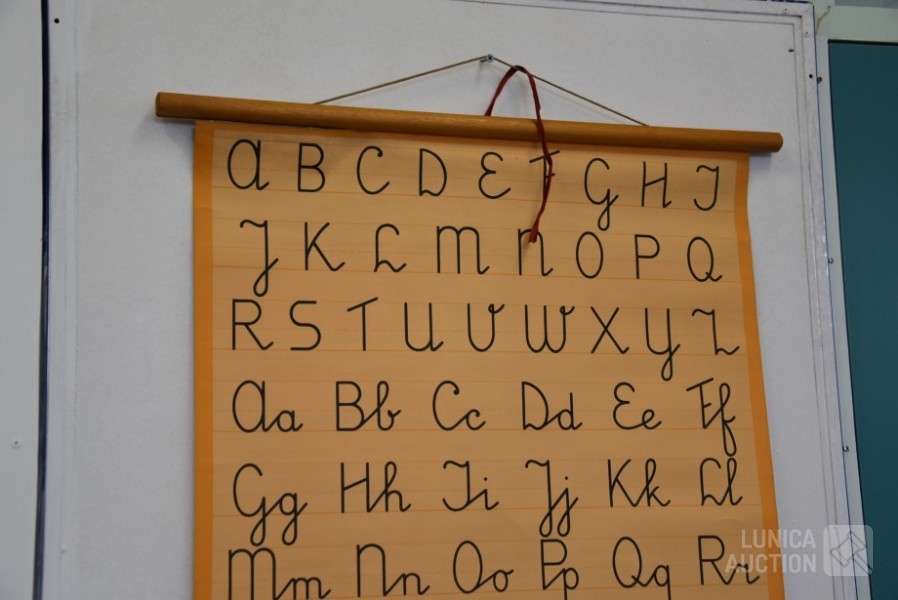 A B C D E F G H I
J K L M N O P Q
R S T U V W X Y Z
Aa Bb Cc Dd Ee Ff
Gg Hh Ii Jj Kk Ll
Mm Nn Oo Pp Qq Rr
LUNICA
AUCTION